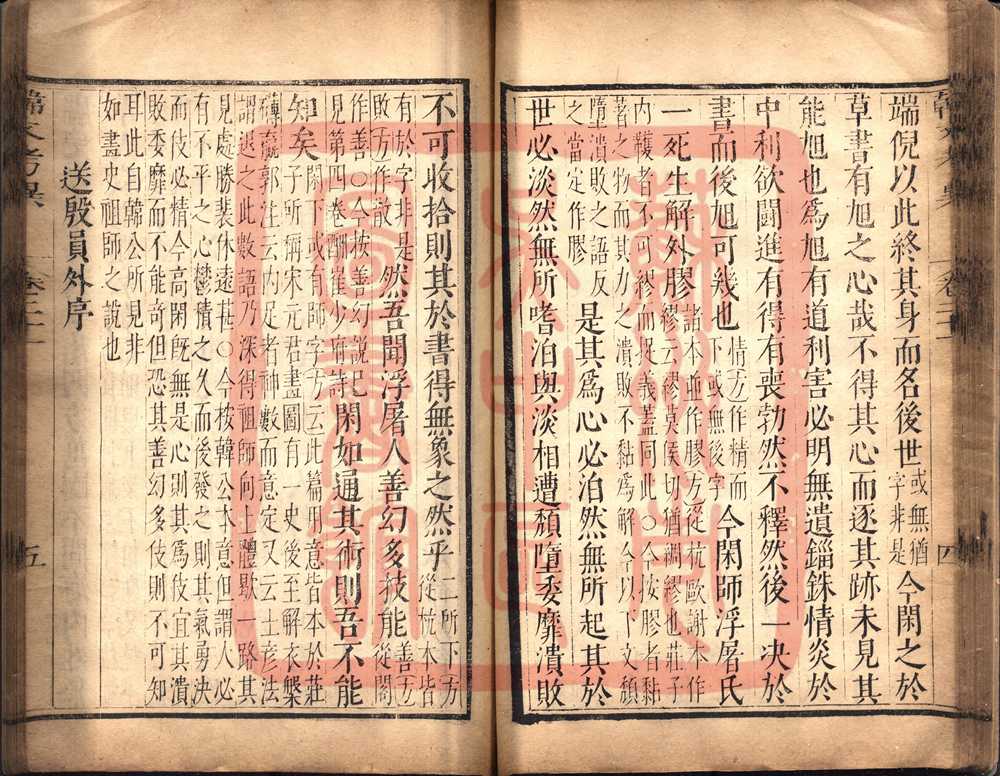 端倪以此終其身而名後世或無猶字非是今閑之於
草書有旭之心哉不得其心而逐其跡未見其
能旭也爲旭有道利害必明無遺錙銖情炎於
中利欲鬪進有得有喪勃然不釋然後一決於
書而後旭可幾也情方作精而下或無後字今閑師浮屠氏
一死生解外膠諸本並作膠方從杭歐謝本作繆云繆莫侯切猶綢繆也莊子
内韄者不可繆而捉義蓋同此○今按膠者黏
著之物而其力之潰敗不黏爲解今以下文頹
墮潰敗之語反之當定作膠是其爲心必泊然無所起其於
世必淡然無所嗜泊與淡相遭頹墮委靡潰敗
不可收拾則其於書得無象之然乎二所下方從杭本皆
有於字非是然吾聞浮屠人善幻多技能善方從閣
敗方作散作善○今按善幻說已見第四卷酬崔少府詩閑如通其術則吾不能
知矣閣下或有師字方云此篇用意皆本於莊子所稱宋元君畫圖有一史後至解衣槃
礴臝郭注云内足者神數而意定又云士彦法
謂退之此數語乃深得祖師向上體歇一路其
見處勝裴休遠甚○今按韓公本意但謂人必
有不平之心鬱積之久而後發之則其氣勇決
而伎必情今高閑旣無是心則其爲伎宜其潰
敗委靡而不能奇但恐其善幻多伎則不可知
耳此自韓公所見非如畫史祖師之說也
送殷員外序
四
五